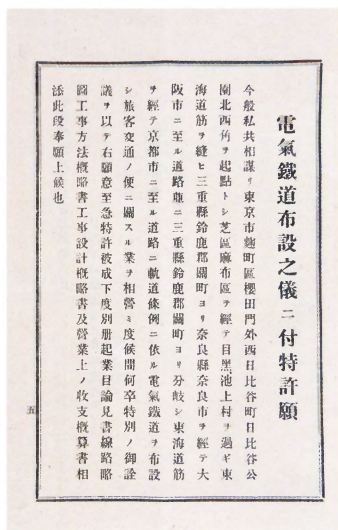 電氣鐵道布設之儀ニ付特許願
今般私共相謀リ東京市麴町區櫻田門外西日比谷町日比谷公
園北西角ヲ起點トシ芝區麻布區ヲ經テ目黑池上村ヲ過ギ東
海道筋ヲ縫ヒ三重縣鈴鹿郡關町ヨリ奈良縣奈良市ヲ經テ大
阪市ニ至ル道路竝ニ三重縣鈴鹿郡關町ヨリ分岐シ東海道筋
ヲ經テ京都市ニ至ル道路ニ軌道條例ニ依ル電氣鐵道ヲ布設
シ旅客交通ノ便ニ關スル業ヲ相營ミ度候間何卒特別ノ御詮
議ヲ以テ右願意至急特許被成下度別册起業目論見書線路略
圖工事方法概略書工事設計概略書及營業上ノ收支概算書相
添此段奉願上候也
五